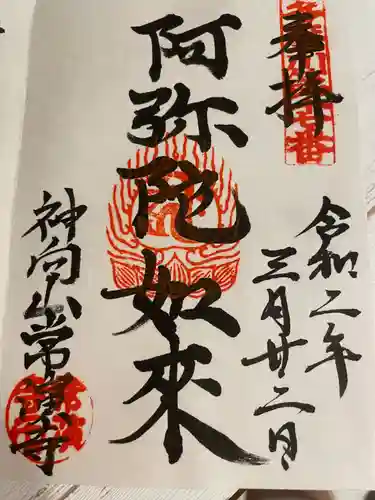 奉拝
令和二年
三月廿二日
阿弥陀如來
神向山常演寺